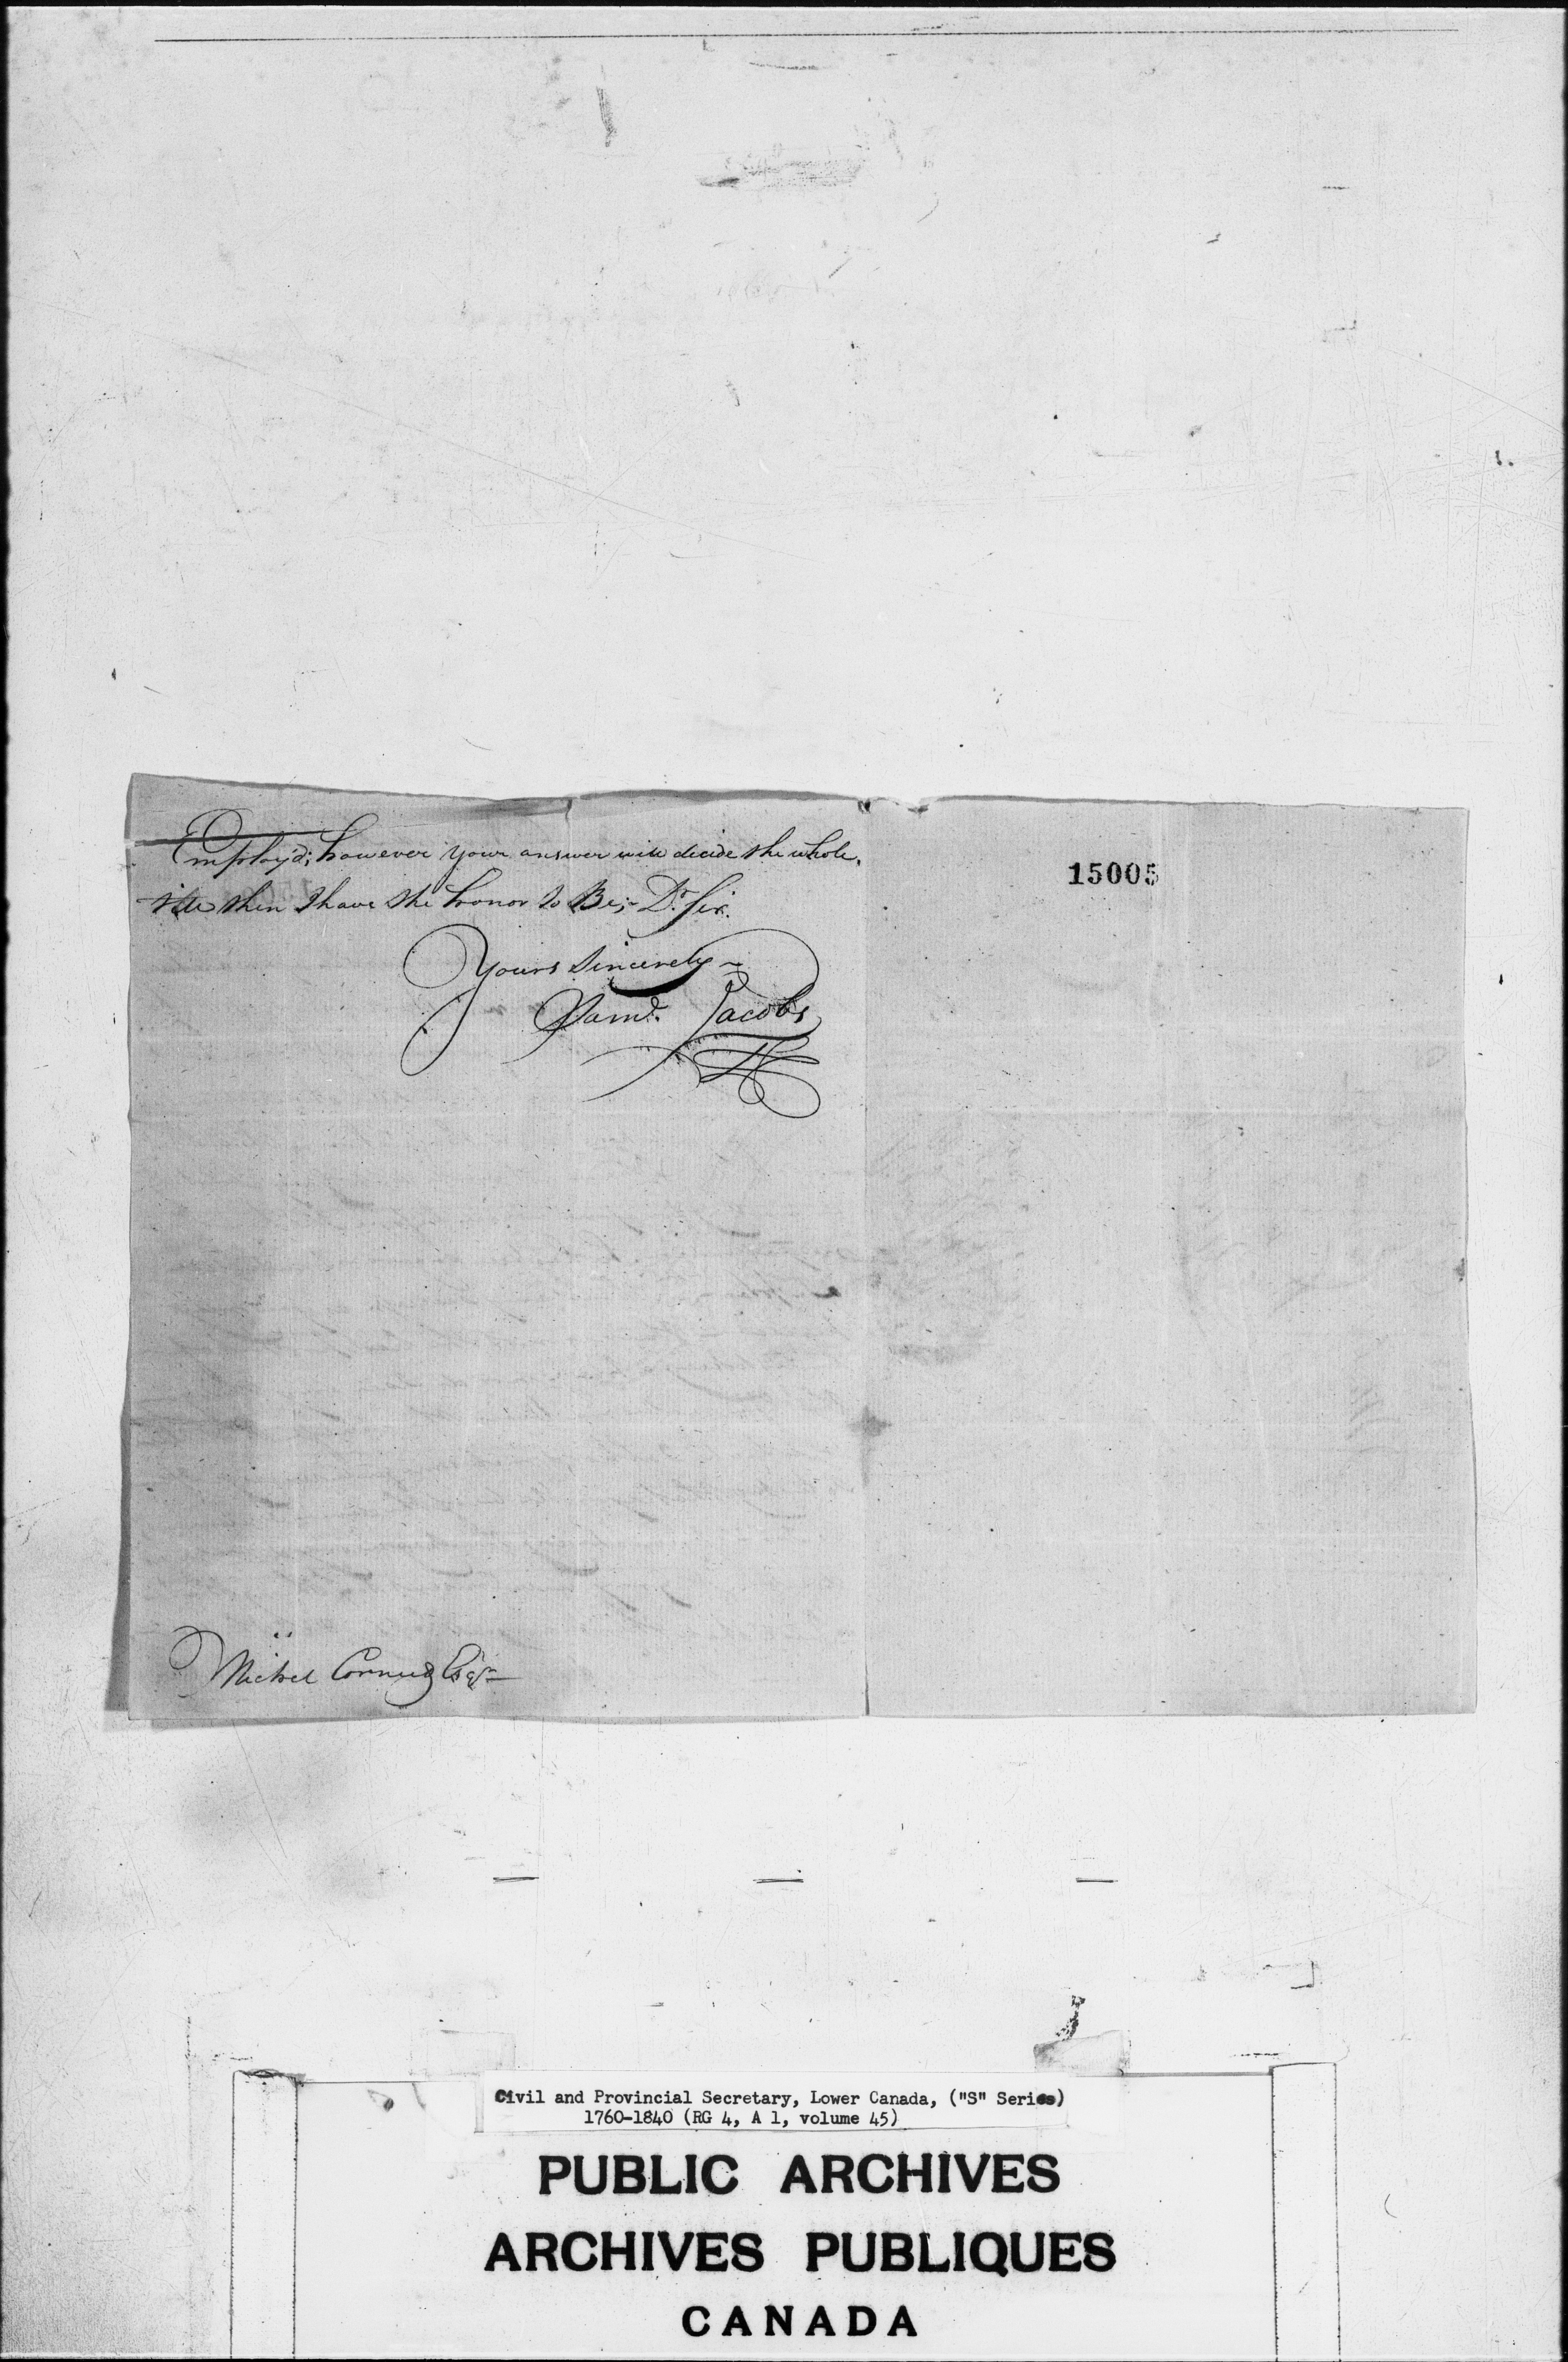 Employ'd; however your answer will decide the whole,
till then I have the honor to Be;- Dr. Sir.
Yours Sincerely
Saml. Jacobs
Michel Cornud Esqr
15005
Civil and Provincial Secretary, Lower Canada, ("S" Series)
1760-1840 (RG 4, A 1, volume 45)
PUBLIC ARCHIVES
ARCHIVES PUBLIQUES
CANADA